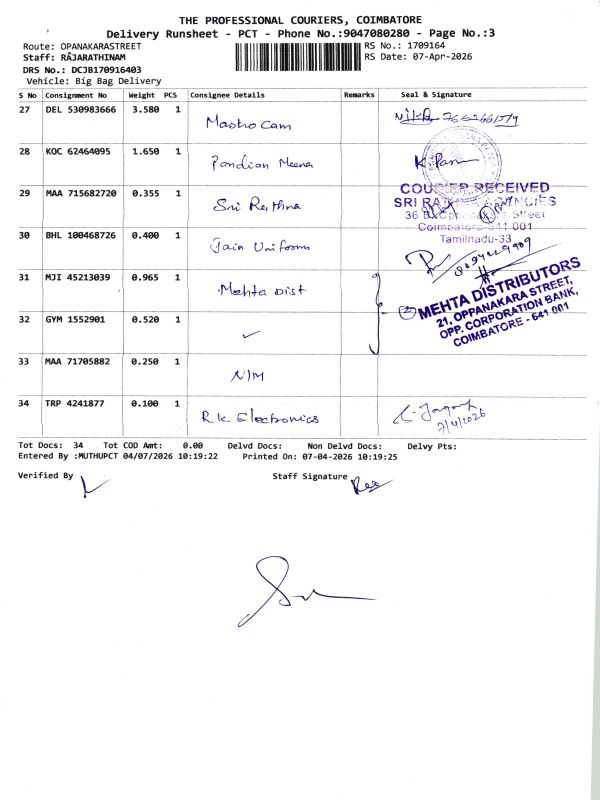 THE PROFESSIONAL COURIERS, COIMBATORE
Delivery Runsheet - PCT - Phone No.:9047080280 - Page No.:3
Route: OPANAKARASTREET
RS No.: 1709164
Staff: RAJARATHINAM
RS Date: 07-Apr-2026
DRS No.: DCJB170916403
Vehicle: Big Bag Delivery
S No Consignment No Weight PCS Consignee Details Remarks Seal & Signature
27 DEL 530983666 3.580 1 Mastro Cam
28 KOC 62464095 1.650 1 Pandian Meena
29 MAA 715682720 0.355 1 Sri Rathna
COURIER RECEIVED
SRI AGENCIES
36 Street
Coimbatore-641 001
Tamilnadu-33
30 BHL 100468726 0.400 1 Jain Uniforms
31 MJI 45213039 0.965 1 Mehta Dist
MEHTA DISTRIBUTORS
21, OPPANAKARA STREET,
OPP. CORPORATION BANK,
COIMBATORE - 641 001
32 GYM 1552901 0.520 1 ✓
33 MAA 71705882 0.250 1 NIM
34 TRP 4241877 0.100 1 R.K. Electronics
7/4/2026
Tot Docs: 34 Tot COD Amt: 0.00 Delvd Docs: Non Delvd Docs: Delvy Pts:
Entered By :MUTHUPCT 04/07/2026 10:19:22 Printed On: 07-04-2026 10:19:25
Verified By Staff Signature